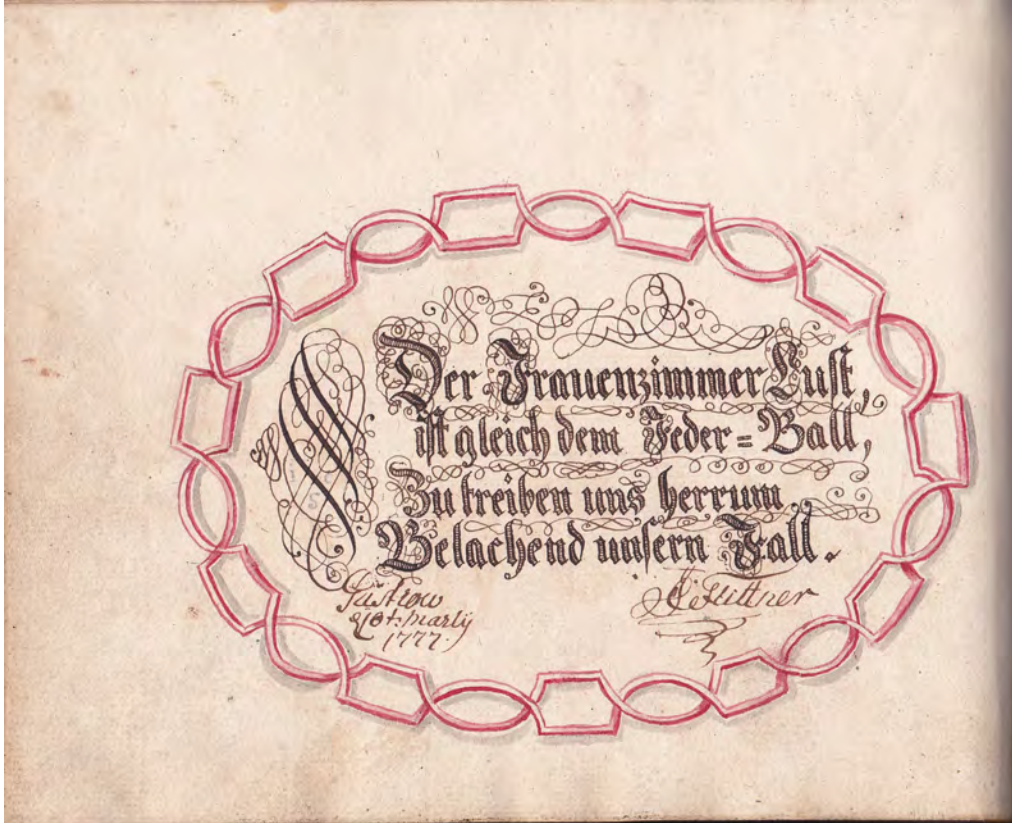 Der Frauenzimmer Lust,
ist gleich dem Feder=Ball,
Zu treiben uns herrum
Belachend unsern Fall.
Güstrow
1777.